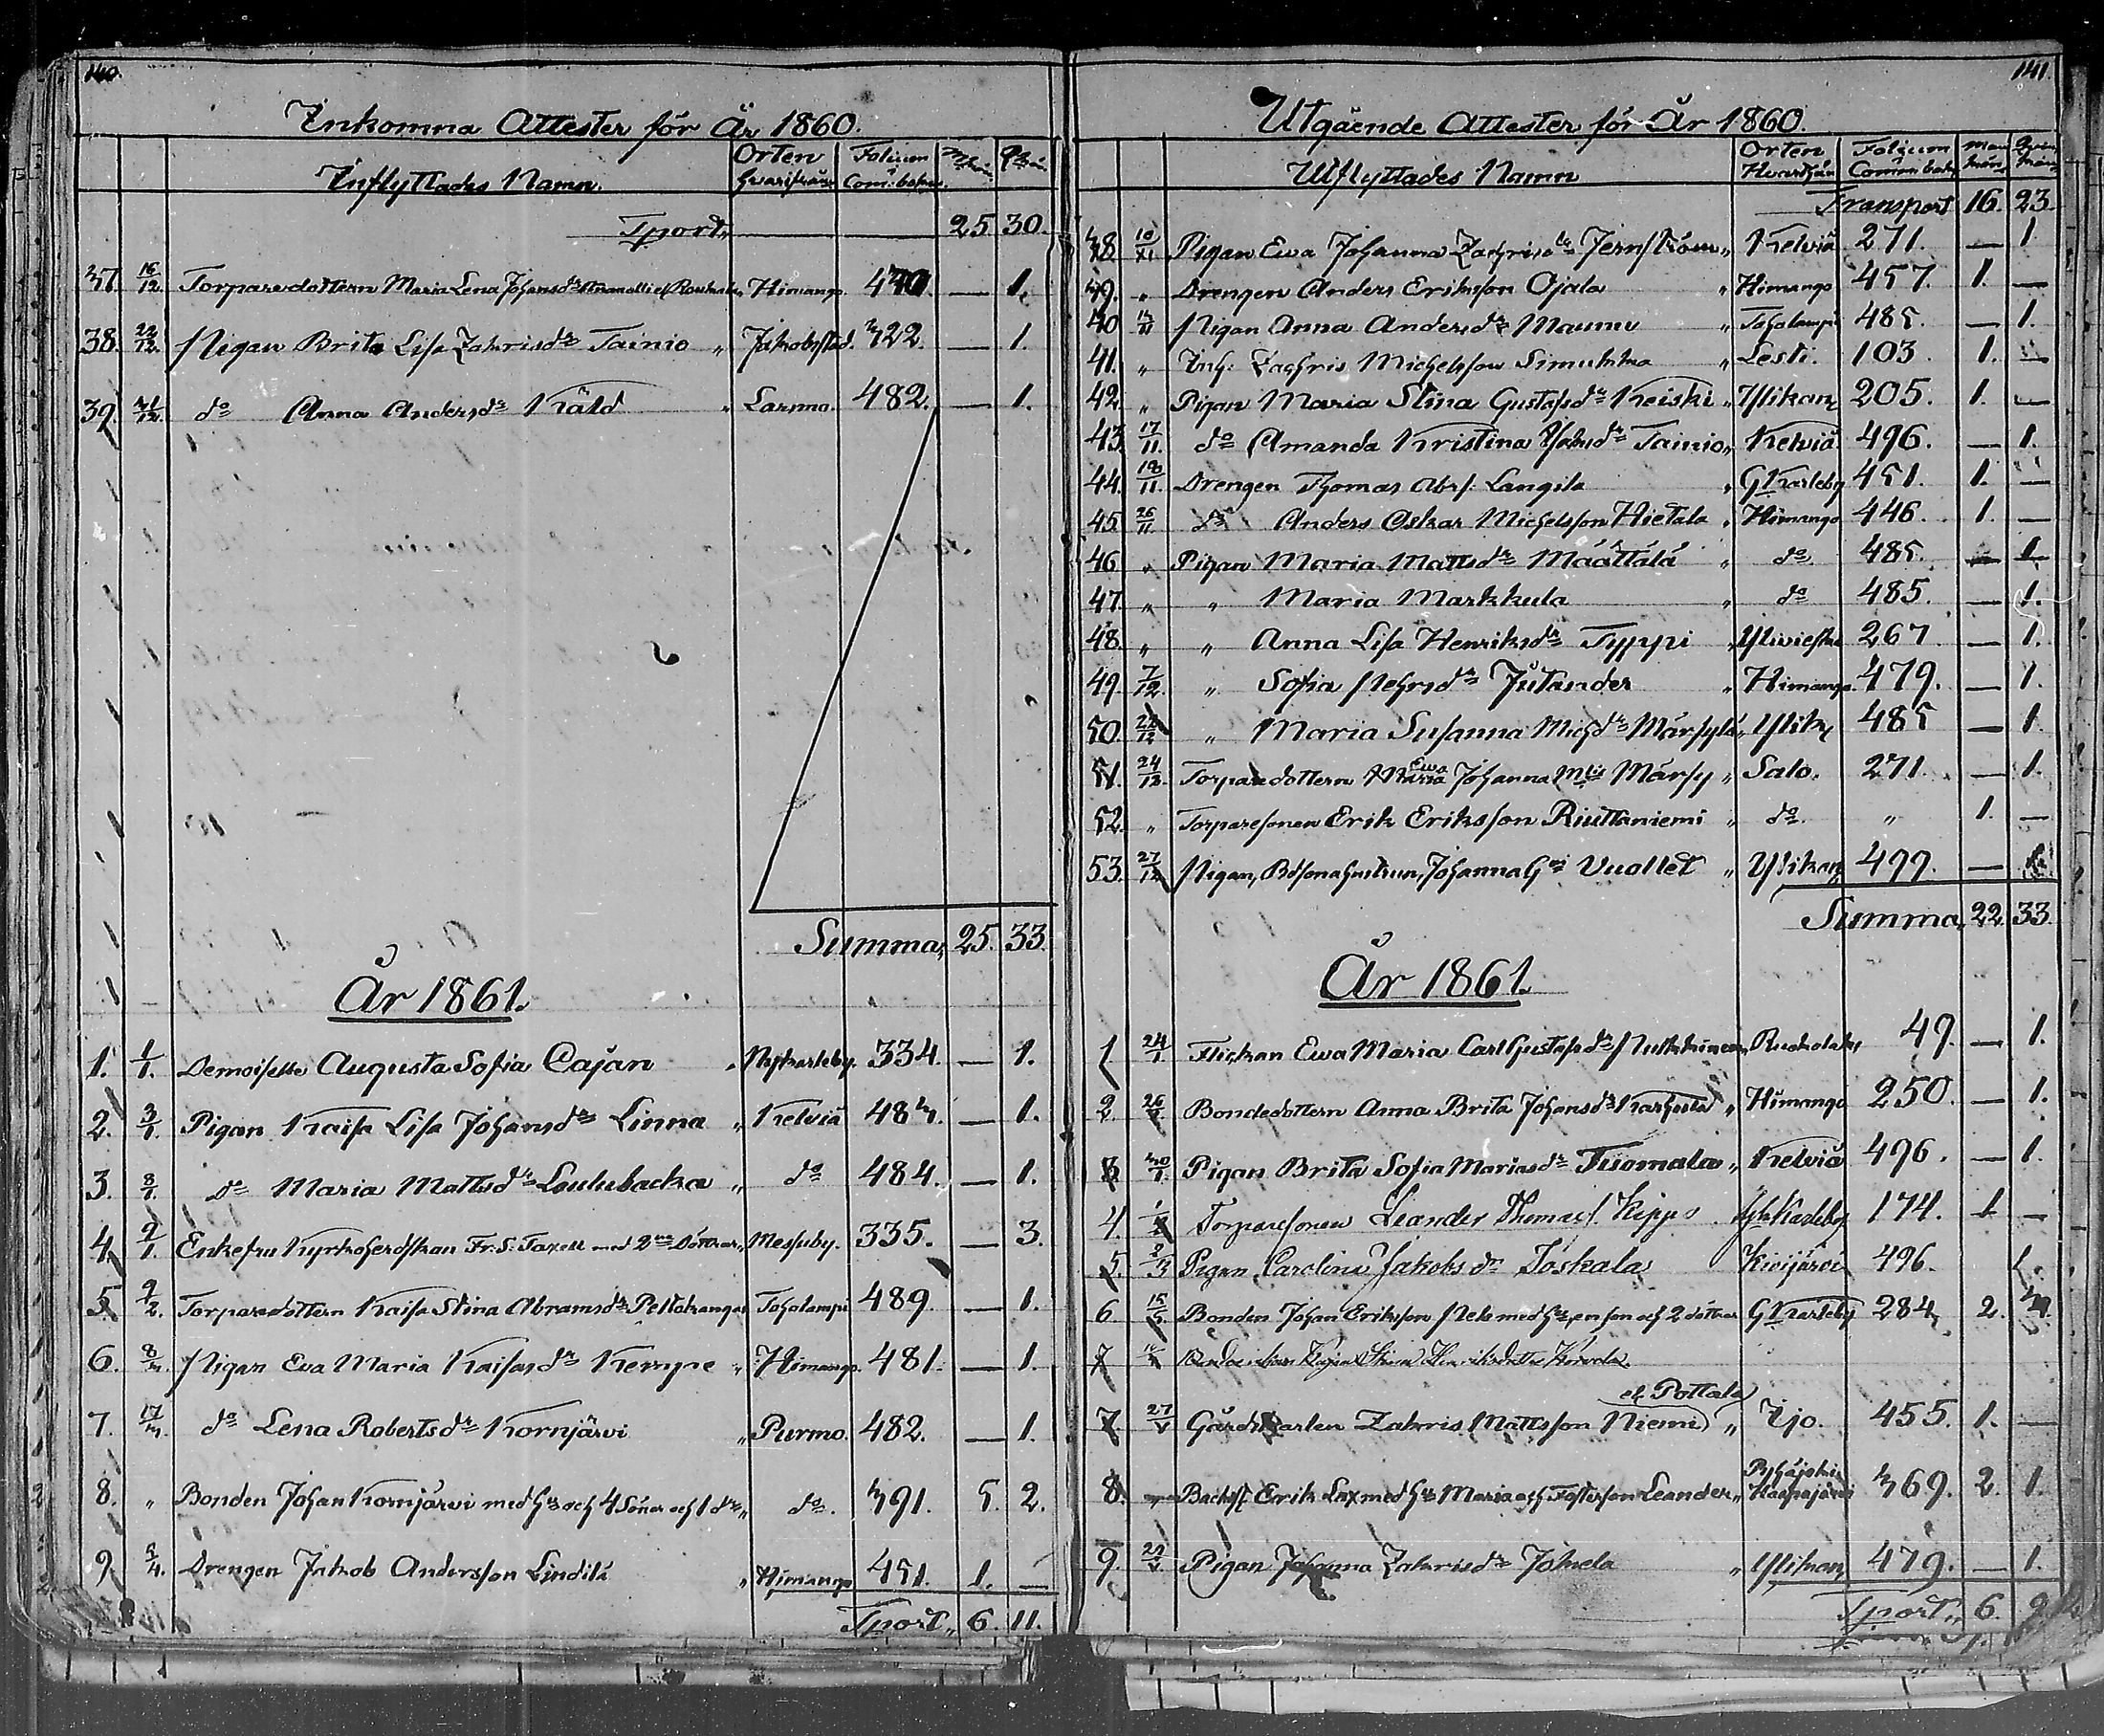 140.
Inkomna Attester för År 1860.
Inflyttades Namn. Orten Folium
Tport. 25 30.
37. 16/12 Torparedottern Maria Lena Johansdr Himango 470. — 1.
38. 22/12 Pigan Brita Lisa Zakrisdr Tainio „ Jakobstad. 422. — 1.
39. 31/12 do Anna Andersdr Kåld „ Larsmo. 482. — 1.
Summa, 25. 33.
År 1861.
1. 1/1. Demoiselle Augusta Sofia Cajan „ Nykarleby. 334. — 1.
2. 3/1. Pigan Kaisa Lisa Johansdr Linna „ Kelviå 484. — 1.
3. 8/1. do Maria Mattsdr Loulubacka „ do 484. — 1.
4. 9/1. Enkefru Kyrkoherdskan Fr. S. Taxell med 2ne Döttrar „ Messuby. 335. — 3.
5. 9/2. Torparedottern Kaisa Stina Abramsdr Peltokangas Toholampi 489. — 1.
6. 8/4. Pigan Eva Maria Kaisasdr Kemppe „ Himango. 481. — 1.
7. 17/4. do Lena Robertsdr Kornjärvi „ Purmo. 482. — 1.
8. „ Bonden Johan Kornjärvi med Hu och 4 Söner och 1 dr „ do. 491. 5. 2.
9. 5/4. Drengen Jakob Andersson Lindilä „ Himango 451. 1. —
Tport „ 6. 11.
141.
Utgående Attester för År 1860.
Utflyttades Namn Orten Folium
Transport 16. 23.
38 10/11 Pigan Ewa Johanna Zachrisdr Jernström „ Kelviå 271. — 1.
39. „ Drengen Anders Eriksson Ojala „ Himango 457. 1. —
40 14/11 Pigan Anna Andersdr Maunu „ Toholampi 485. — 1.
41. „ Inh: Zachris Michelsson Simukka „ Lesti. 103. 1. —
42. „ Pigan Maria Stina Gustafsdr Keiski „ Ylikan, 205. 1. —
43. 17/11. do Amanda Kristina Tainio „ Kelviå 496. — 1.
44. 18/11. Drengen Thomas Abrs. Langila „ GKarleby 451. 1. —
45. 26/11 do Anders Oskar Michelsson Hietala „ Himango 446. 1. —
46 „ Pigan Maria Mattsdr Määttälä „ do 485. — 1.
47. „ „ Maria Markkula „ do 485. — 1.
48. „ „ Anna Lisa Henriksdr Typpi „ Ylivieska 267 — 1.
49. 7/12. „ Sofia Pehrsdr Jutander „ Himango 479. — 1.
50. 22/12 „ Maria Susanna Michdr Märsylä „ Ylik, 485 — 1.
51. 24/12. Torparedottern Ewa Johanna Märsy „ Salo. 271. — 1.
52. „ Torparesonen Erik Eriksson Riuttaniemi „ do. „ 1. —
53. 27/12 Pigan, Bdsonahustrun, Johanna Vuollet „ Ylikan, 499. —
Summa, 22. 33.
År 1861.
1 24/1 Flickan Ewa Maria Carl Gustafsdr 49. — 1.
2. 26/1. Bondedottern Anna Brita Johansdr Karhula „ Himango 250. — 1.
3. 30/1. Pigan Brita Sofia Mariasdr Tuomala „ Kelviå 496. — 1.
4. Torparesonen Leander Thomass. Kippo GlaKarleby 174. 1 —
5. 2/3 Pigan Carolina Jakobsdr Joskala Kivijärvi 496. 1.
6 15/5. Bonden Johan Eriksson Pelo med Hu, en son och 2 döttrar GKarleby 284, 2.
7
el. Pottala
7. 27/5 Gårdskarlen Zakris Mattsson Niemi „ Ijo. 455. 1. —
8. „ Erik Lax med Hu Maria och Fosterson Leander „ Pyhäjoki, Haapajärvi 369. 2. 1.
9. 29/5. Pigan Johanna Zakrisdr Jokela „ Ylikan, 479. — 1.
Tport „ 6. 9.